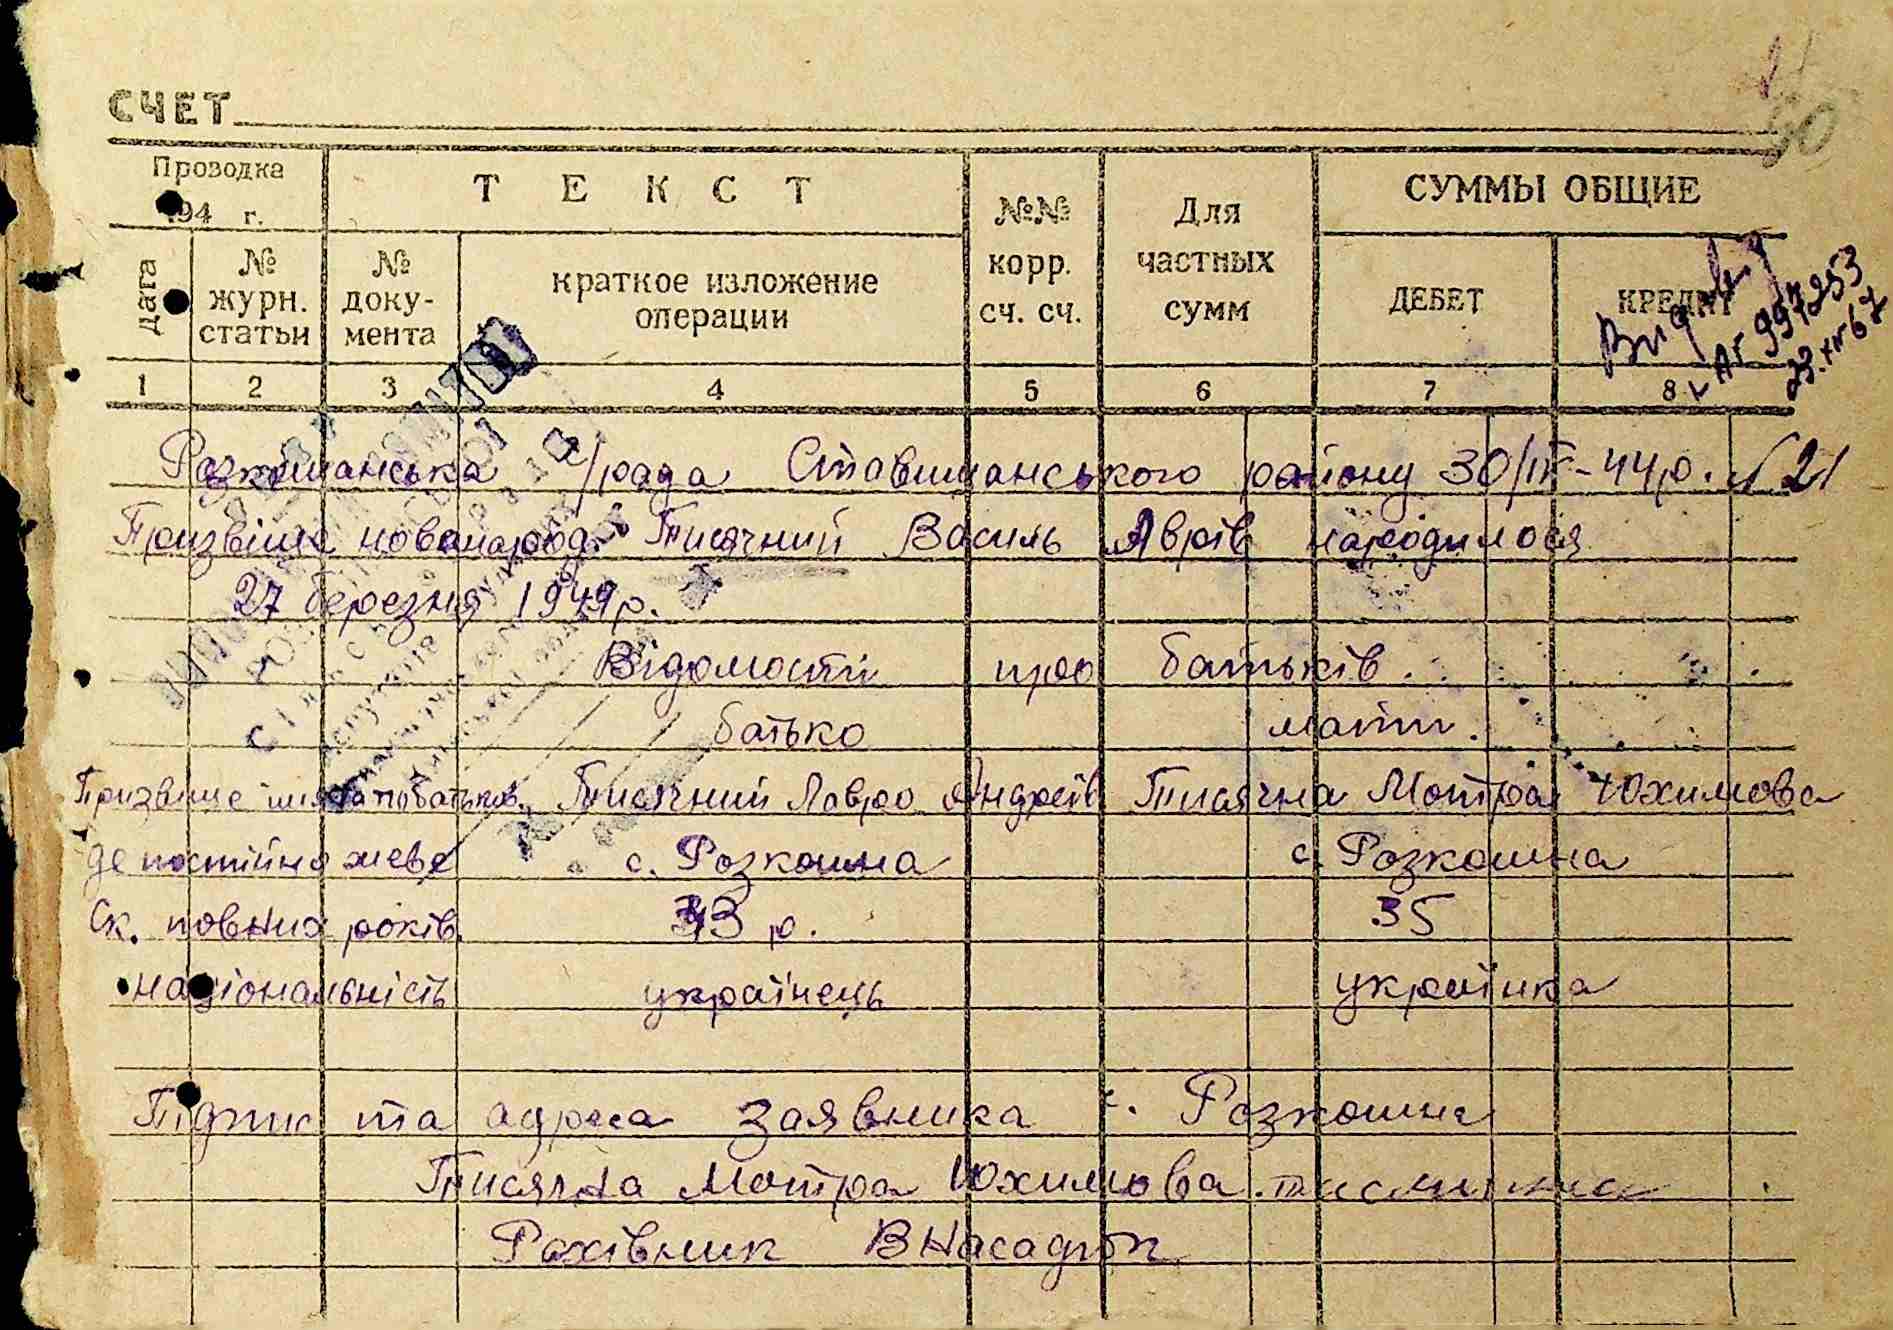 30
СЧЕТ
Проводка
194 г.
ТЕКСТ
№№ корр. сч. сч.
Для частных сумм
СУММЫ ОБЩИЕ
Дата
№ журн. статьи
№ доку-мента
краткое изложение операции
ДЕБЕТ
КРЕДИТ
997253
1 2 3 4 5 6 7 8
Розкішанська с/рада Ставищанського району 30/III-44р. №21
Призвіще новонарод. Тисячний Василь Лаврів народилося
27 березня 1944р.
Відомості про батьків.
батько мати.
Призвіще імя та по батьков. Тисячний Лавро Андреів Тисячна Мотра Юхимова
де постійно живе с. Розкошна с. Розкошна
Ск. повних років 43 р. 35
національність українець українка
Підпис та адреса заявника с. Розкошна
Тисячна Мотра Юхимова
Рахівник